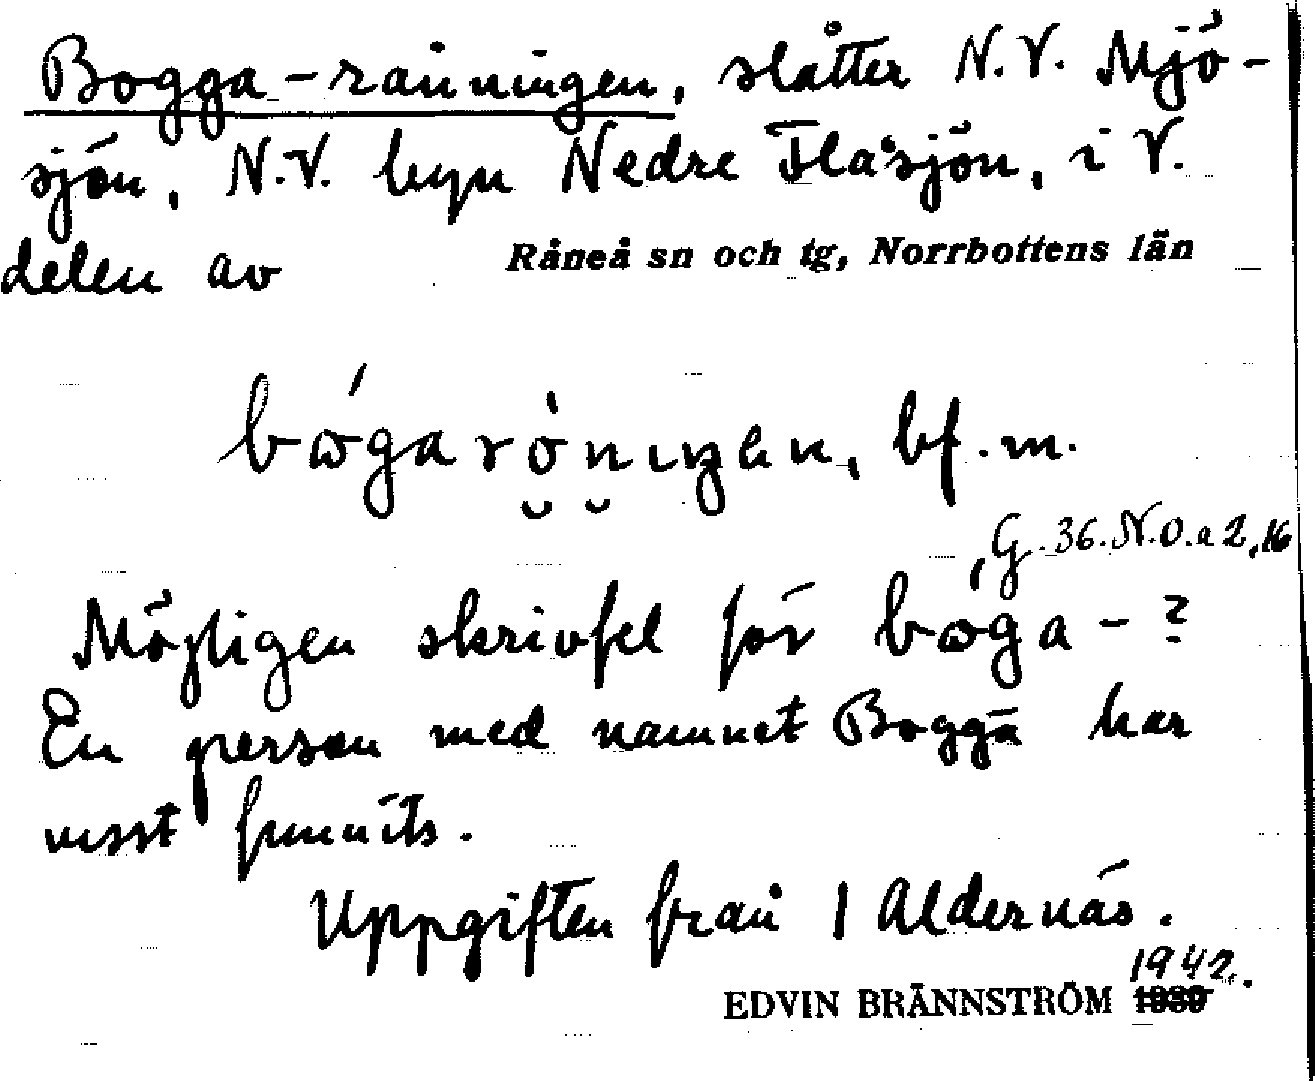 Bogga-råningen, slåtter N.V. Mjö-
sjön, N.V. byn Nedre Flåsjön, i V.
delen av Råneå sn och tg, Norrbottens län
bógaròningen, bf. m.
G. 36. N.O. a 2, 16
Möjligen skrivfel för bòga-?
En person med namnet Bogga har
visst funnits.
Uppgiften från 1 Aldernäs.
1942.
EDVIN BRÄNNSTRÖM 1939